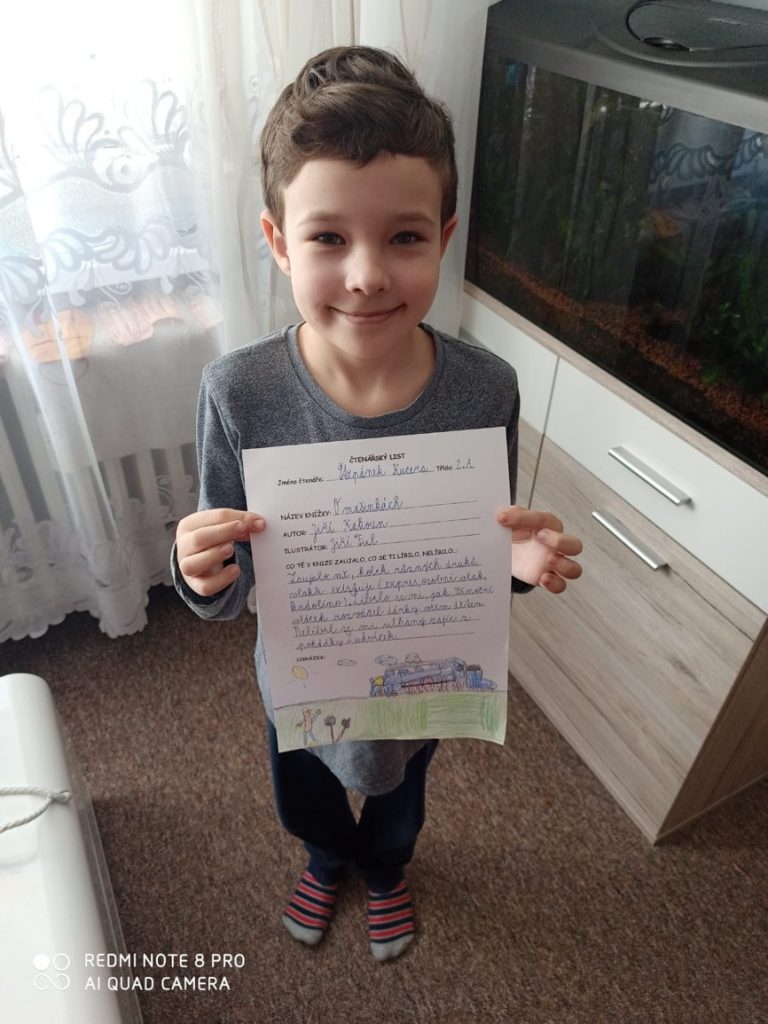 ČTENÁŘSKÝ LIST
Jméno čtenáře: Štěpánek Kucera Třída: 2.A
NÁZEV KNÍŽKY: O mašinkách
AUTOR: Jiří Kahoun
ILUSTRÁTOR: Jiří Fixl
CO TĚ V KNIZE ZAUJALO, CO SE TI LÍBILO, NELÍBILO...
Zaujalo mě, kolik různých druhů
vlaků existuje (expres, osobní vlak,
), líbilo se mi, jak Vánoční
vláček rozvážel dárky všem dětem.
Nelíbil se mi ulhaný zajíc z
pohádky Ludvíček.
OBRÁZEK:
REDMI NOTE 8 PRO
AI QUAD CAMERA